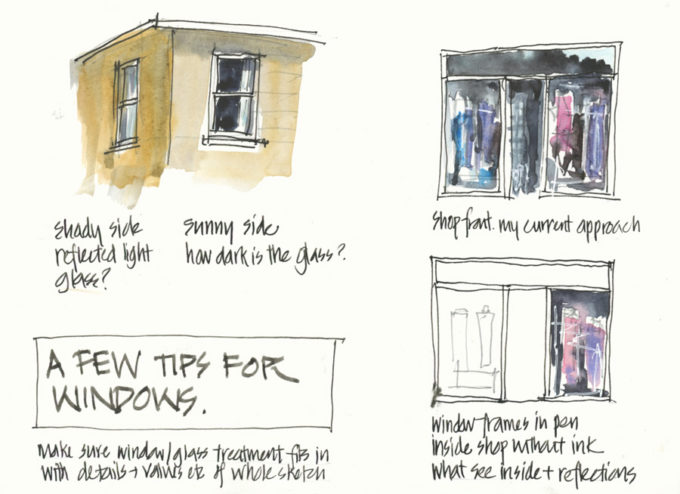 shady side
reflected light
glass?
sunny side
how dark is the glass?.
shop front. my current approach
A FEW TIPS FOR
WINDOWS.
Make sure window/glass treatment fits in
with details + values etc of whole sketch
window frames in pen
inside shop without ink
what see inside + reflections